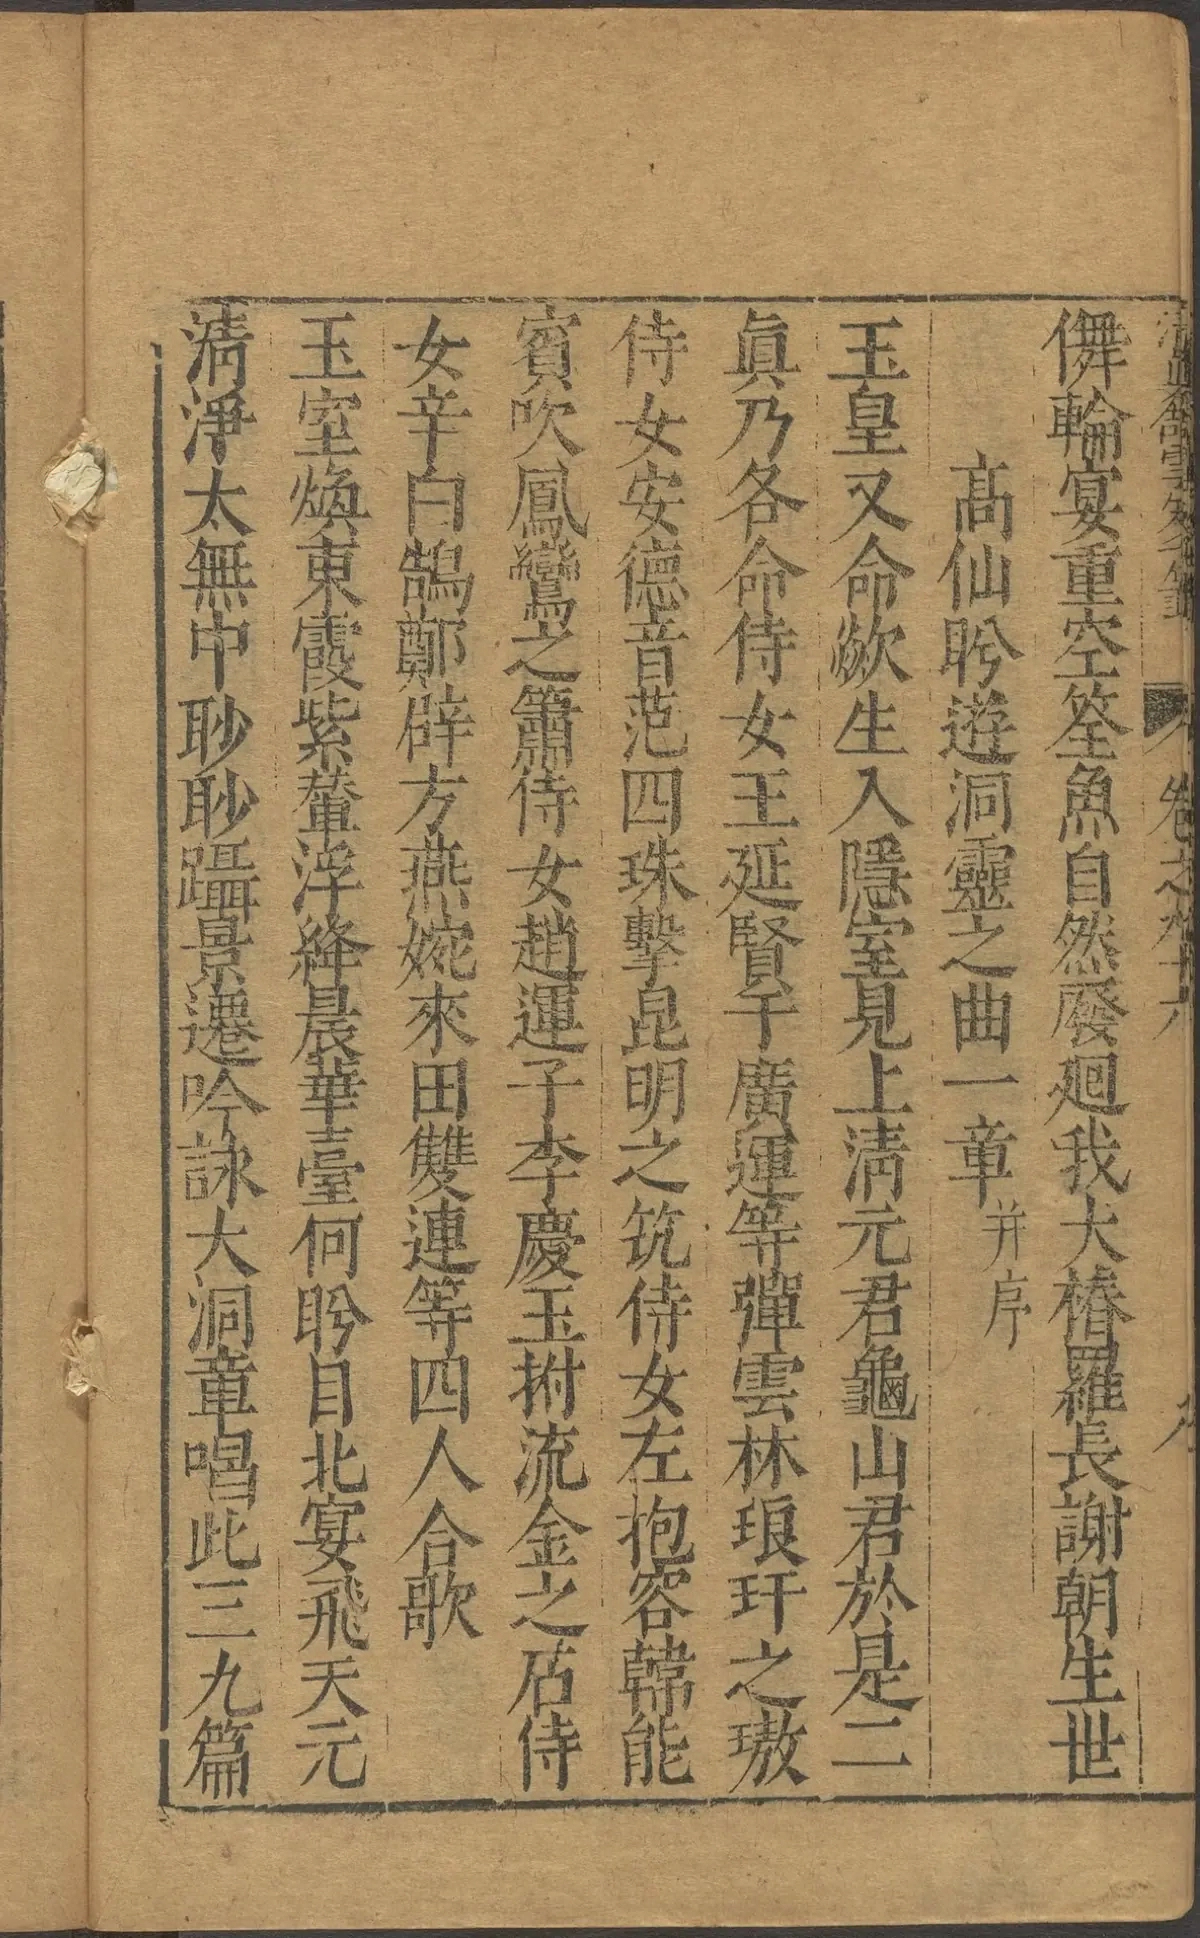 儛輪宴重空筌魚自然廢廻我大椿羅長謝朝生世
高仙盻遊洞靈之曲一章并序
玉皇又命歘生入隱室見上清元君龜山君於是二
眞乃各命侍女王延賢于廣運等彈雲林琅玕之璈
侍女安德音范四珠擊昆明之筑侍女左抱容韓能
賓吹鳳鸞之簫侍女趙運子李慶玉拊流金之石侍
女辛白鵠鄭辟方燕婉來田雙連等四人合歌
玉室煥東霞紫輦浮絳晨華臺何盻目北宴飛天元
淸淨太無中眇眇躡景遷吟詠大洞章唱此三九篇
卷之九十六